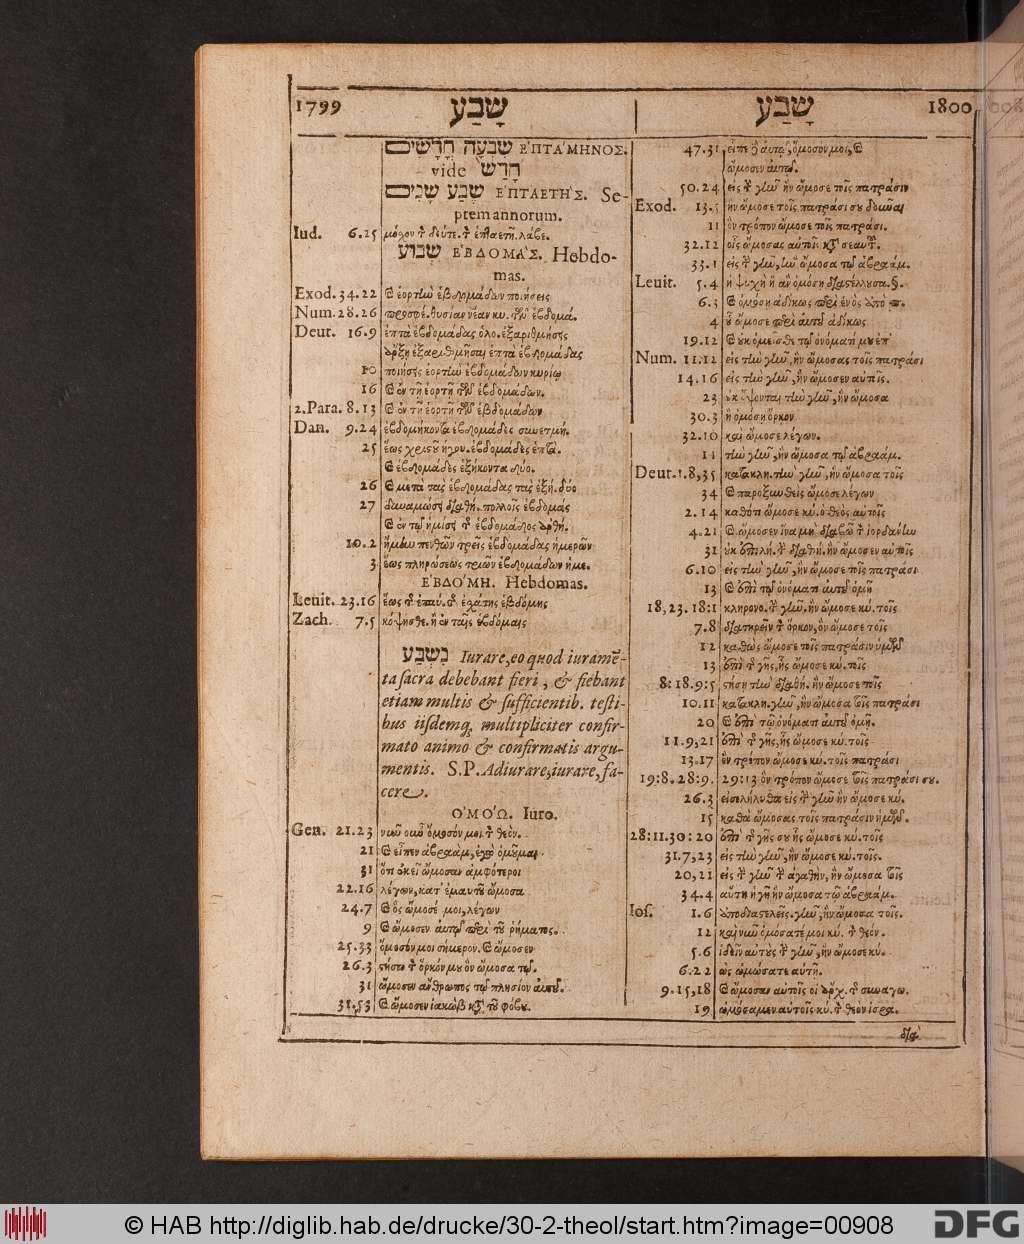 1799 שָׁבַע שָׁבַע 1800
שִׁבְעָה חֳדָשִׁים ἙΠΤΆΜΗΝΟΣ.
vide חָדַשׁ
שֶׁבַע שָׁנִים ἙΠΤΑΕΤΉΣ. Se-
ptem annorum.
Iud. 6.25 μόσχον τ̃ δεύτε. τ̃ ἑπταετῆ. λάβε.
שָׁבוּעַ ἙΒΔΟΜΆΣ. Hebdo-
mas.
Exod. 34.22 ϗ ἑορτίω ἑβδομάδων ποιήσεις
Num. 28.26 προσφέ. θυσίαν νέαν κυ. τῶν ἑβδομά.
Deut. 16.9 ἑπτὰ ἑβδομάδας ὁλο. ἐξαριθμήσεις
ἄρξῃ ἐξαριθμῆσαι ἑπτὰ ἑβδομάδας
10 ποιήσεις ἑορτίω ἑβδομάδων κυρίῳ
16 ϗ ἐν τῇ ἑορτῇ τῶν ἑβδομάδων.
2.Para. 8.13 ϗ ἐν τῇ ἑορτῇ τῶν ἑβδομάδων
Dan. 9.24 ἑβδομήκοντα ἑβδομάδες συνετμή.
25 ἕως χριστοῦ ἡγου. ἑβδομάδες ἑπτά.
ϗ ἑβδομάδες ἑξήκοντα δύο.
26 ϗ μετὰ τὰς ἑβδομάδας τὰς ἑξή. δύο
27 δυναμώσει διαθή. πολλοῖς ἑβδομὰς
ϗ ἐν τῷ ἡμίσει τ̃ ἑβδομάδος ἀρθή.
10.2 ἤμίω πενθῶν τρεῖς ἑβδομάδας ἡμερῶν
3 ἕως πληρώσεως τριῶν ἑβδομάδων ἡμε.
ἙΒΔΌΜΗ. Hebdomas.
Leuit. 23.16 ἕως τ̃ ἐπαύ. τ̃ ἐχάτης ἑβδόμης
Zach. 7.5 κόψησθε. ἢ ἐν ταῖς ἑβδόμαις
נִשְׁבַּע Iurare, eo quod iuramē-
ta sacra debebant fieri, & fiebant
etiam multis & sufficientib. testi-
bus iisdemq; multipliciter confir-
mato animo & confirmatis argu-
mentis. S.P. Adiurare, iurare, fa-
cere.
ὈΜΌΩ. Iuro.
Gen. 21.23 νῦν οὖν ὄμοσόν μοι τ̃ θεόν.
21 ϗ εἶπεν ἀβραὰμ, ἐγὼ ὀμοῦμαι
31 ὅτι ἐκεῖ ὤμοσαν ἀμφότεροι
22.16 λέγων, κατ' ἐμαυτοῦ ὤμοσα
24.7 ϗ ὃς ὤμοσέ μοι, λέγων
9 ϗ ὤμοσεν αὐτῷ περὶ τοῦ ῥήματος.
25.33 ὄμοσόν μοι σήμερον. ϗ ὤμοσεν
26.3 στήσω τ̃ ὅρκόν μου ὃν ὤμοσα τῷ.
31 ὤμοσεν ἄνθρωπος τῷ πλησίον αὐτοῦ.
31.53 ϗ ὤμοσεν ἰακὼβ κτ̃ τοῦ φόβου.
47.31 εἶπε δὲ αὐτῷ, ὄμοσόν μοι, ϗ
ὤμοσεν αὐτῷ.
50.24 εἰς τ̃ γῆν ἣν ὤμοσε τοῖς πατράσιν
Exod. 13.5 ἣν ὤμοσε τοῖς πατράσι σου δοῦναι
11 ὃν τρόπον ὤμοσε τοῖς πατράσι.
32.12 οἷς ὤμοσας αὐτοῖς κτ̃ σεαυτ̃.
33.1 εἰς τ̃ γῆν, ἣν ὤμοσα τῷ ἀβραάμ.
Leuit. 5.4 ἡ ψυχὴ ἣ ἂν ὀμόσῃ διαστέλλουσα.
6.3 ϗ ὀμόσῃ ἀδίκως περὶ ἑνὸς ἀπὸ π.
4 οὗ ὤμοσε περὶ αὐτοῦ ἀδίκως
19.12 ϗ οὐκ ὀμεῖσθε τῷ ὀνόματί μου ἐπ'
Num. 11.12 εἰς τὴν γῆν, ἣν ὤμοσας τοῖς πατράσι
14.16 εἰς τὴν γῆν, ἣν ὤμοσεν αὐτοῖς.
23 οὐκ ὄψονται τὴν γῆν, ἣν ὤμοσα
30.3 ἢ ὀμόσῃ ὅρκον
32.10 καὶ ὤμοσε λέγων.
11 τὴν γῆν, ἣν ὤμοσα τῷ ἀβραάμ.
Deut. 1.8,35 κατακλη. τὴν γῆν, ἣν ὤμοσα τοῖς
34 ϗ παροξυνθεὶς ὤμοσε λέγων
2.14 καθότι ὤμοσε κύ. ὁ θεὸς αὐτοῖς
4.21 ϗ ὤμοσεν ἵνα μὴ διαβῶ τ̃ ἰορδάνίω
31 οὐκ ἐπιλή. τ̃ διαθή. ἣν ὤμοσεν αὐτοῖς
6.10 εἰς τὴν γῆν, ἣν ὤμοσε τοῖς πατράσι
13 ϗ ἐπὶ τῷ ὀνόματι αὐτοῦ ὀμῇ
18,23. 18:1 κληρονο. τ̃ γῆν. ἣν ὤμοσε κύ. τοῖς
7.8 διατηρεῖν τ̃ ὅρκον, ὃν ὤμοσε τοῖς
12 καθὼς ὤμοσε τοῖς πατράσιν ὑμῶν
13 ἐπὶ τ̃ γῆς, ἧς ὤμοσε κύ. τοῖς
8:18. 9:5 στήσῃ τὴν διαθή. ἣν ὤμοσε τοῖς
10.11 κατακλη. γῆν, ἣν ὤμοσα τοῖς πατράσι
20 ϗ ἐπὶ τῷ ὀνόματι αὐτοῦ ὀμῇ.
11.9,21 ἐπὶ τ̃ γῆς, ἧς ὤμοσε κύ. τοῖς
13.17 ὃν τρόπον ὤμοσε κύ. τοῖς πατράσι
19:8. 28:9. 29:13 ὃν τρόπον ὤμοσε τοῖς πατράσι σου.
26.3 εἰσελήλυθα εἰς τ̃ γῆν ἣν ὤμοσε κύ.
15 καθὰ ὤμοσας τοῖς πατράσιν ἡμῶν.
28:11. 30:20 ἐπὶ τ̃ γῆς σου ἧς ὤμοσε κύ. τοῖς
31.7,23 εἰς τὴν γῆν, ἣν ὤμοσε κύ. τοῖς.
20,21 εἰς τ̃ γῆν τ̃ ἀγαθήν, ἣν ὤμοσα τοῖς
34.4 αὕτη ἡ γῆ ἣν ὤμοσα τῷ ἀβραάμ.
Ios. 1.6 ἀποδιαστελεῖς. γῆν, ἣν ὤμοσα τοῖς.
12 καὶ νῦν ὀμόσατέ μοι κύ. τ̃ θεόν.
5.6 ἰδεῖν αὐτοὺς τ̃ γῆν, ἣν ὤμοσε κύ.
6.22 ὡς ὠμόσατε αὐτῇ.
9.15,18 ϗ ὤμοσαν αὐτοῖς οἱ ἄρχ. τ̃ συναγω.
19 ὠμόσαμεν αὐτοῖς κύ. τ̃ θεὸν ἰσρα.
διὰ
© HAB http://diglib.hab.de/drucke/30-2-theol/start.htm?image=00908
DFG